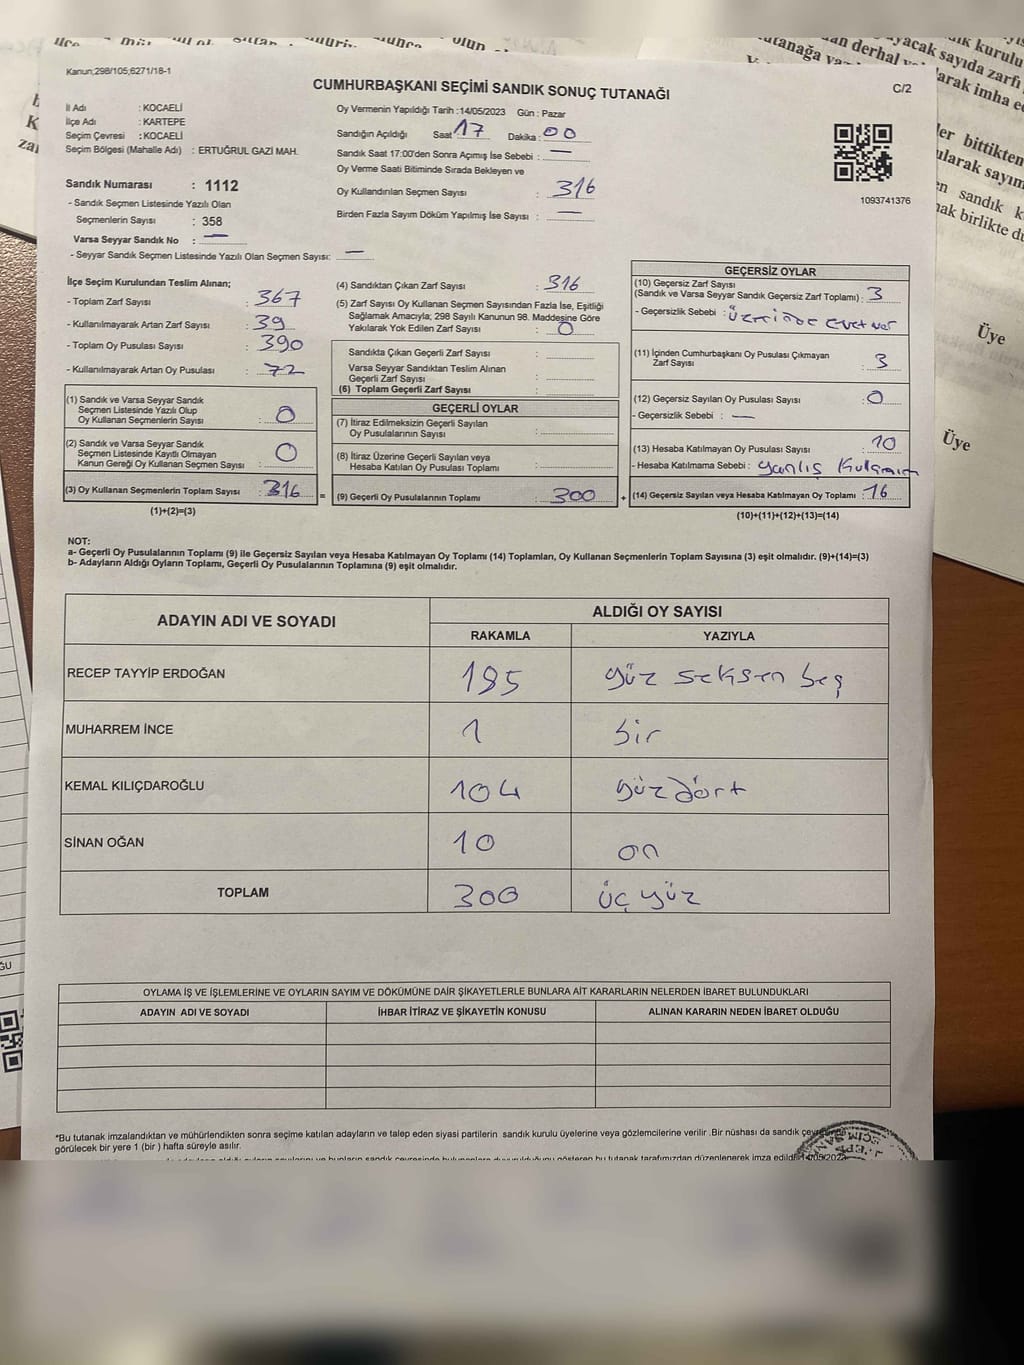 Kanun;298/105;6271/18-1
CUMHURBAŞKANI SEÇİMİ SANDIK SONUÇ TUTANAĞI
C/2
İl Adı : KOCAELİ
İlçe Adı : KARTEPE
Seçim Çevresi : KOCAELİ
Seçim Bölgesi (Mahalle Adı) : ERTUĞRUL GAZİ MAH.
Sandık Numarası : 1112
- Sandık Seçmen Listesinde Yazılı Olan
Seçmenlerin Sayısı : 358
Varsa Seyyar Sandık No : —
- Seyyar Sandık Seçmen Listesinde Yazılı Olan Seçmen Sayısı: —
Oy Vermenin Yapıldığı Tarih :14/05/2023 Gün : Pazar
Sandığın Açıldığı Saat 17 Dakika : 00
Sandık Saat 17:00'den Sonra Açımış İse Sebebi : —
Oy Verme Saati Bitiminde Sırada Bekleyen ve
Oy Kullandırılan Seçmen Sayısı : 316
Birden Fazla Sayım Döküm Yapılmış İse Sayısı : —
1093741376
İlçe Seçim Kurulundan Teslim Alınan;
- Toplam Zarf Sayısı : 367
- Kullanılmayarak Artan Zarf Sayısı : 39
- Toplam Oy Pusulası Sayısı : 390
- Kullanılmayarak Artan Oy Pusulası : 72
(1) Sandık ve Varsa Seyyar Sandık
Seçmen Listesinde Yazılı Olup
Oy Kullanan Seçmenlerin Sayısı : 0
(2) Sandık ve Varsa Seyyar Sandık
Seçmen Listesinde Kayıtlı Olmayan
Kanun Gereği Oy Kullanan Seçmen Sayısı : 0
(3) Oy Kullanan Seçmenlerin Toplam Sayısı : 316
(1)+(2)=(3)
=
(4) Sandıktan Çıkan Zarf Sayısı : 316
(5) Zarf Sayısı Oy Kullanan Seçmen Sayısından Fazla İse, Eşitliği
Sağlamak Amacıyla; 298 Sayılı Kanunun 98. Maddesine Göre
Yakılarak Yok Edilen Zarf Sayısı : 0
Sandıkta Çıkan Geçerli Zarf Sayısı :
Varsa Seyyar Sandıktan Teslim Alınan
Geçerli Zarf Sayısı :
(6) Toplam Geçerli Zarf Sayısı :
GEÇERLİ OYLAR
(7) İtiraz Edilmeksizin Geçerli Sayılan
Oy Pusulalarının Sayısı :
(8) İtiraz Üzerine Geçerli Sayılan veya
Hesaba Katılan Oy Pusulası Toplamı :
(9) Geçerli Oy Pusulalarının Toplamı : 300
+
GEÇERSİZ OYLAR
(10) Geçersiz Zarf Sayısı
(Sandık ve Varsa Seyyar Sandık Geçersiz Zarf Toplamı) : 3
- Geçersizlik Sebebi : üzerinde evet var
(11) İçinden Cumhurbaşkanı Oy Pusulası Çıkmayan
Zarf Sayısı : 3
(12) Geçersiz Sayılan Oy Pusulası Sayısı : 0
- Geçersizlik Sebebi : —
(13) Hesaba Katılmayan Oy Pusulası Sayısı : 10
- Hesaba Katılmama Sebebi : yanlış
(14) Geçersiz Sayılan veya Hesaba Katılmayan Oy Toplamı : 16
(10)+(11)+(12)+(13)=(14)
NOT:
a- Geçerli Oy Pusulalarının Toplamı (9) ile Geçersiz Sayılan veya Hesaba Katılmayan Oy Toplamı (14) Toplamları, Oy Kullanan Seçmenlerin Toplam Sayısına (3) eşit olmalıdır. (9)+(14)=(3)
b- Adayların Aldığı Oyların Toplamı, Geçerli Oy Pusulalarının Toplamına (9) eşit olmalıdır.
ADAYIN ADI VE SOYADI
ALDIĞI OY SAYISI
RAKAMLA YAZIYLA
RECEP TAYYİP ERDOĞAN 185 yüz seksen beş
MUHARREM İNCE 1 bir
KEMAL KILIÇDAROĞLU 104 yüzdört
SİNAN OĞAN 10 on
TOPLAM 300 üç yüz
OYLAMA İŞ VE İŞLEMLERİNE VE OYLARIN SAYIM VE DÖKÜMÜNE DAİR ŞİKAYETLERLE BUNLARA AİT KARARLARIN NELERDEN İBARET BULUNDUKLARI
ADAYIN ADI VE SOYADI İHBAR İTİRAZ VE ŞİKAYETİN KONUSU ALINAN KARARIN NEDEN İBARET OLDUĞU
*Bu tutanak imzalandıktan ve mühürlendikten sonra seçime katılan adayların ve talep eden siyasi partilerin sandık kurulu üyelerine veya gözlemcilerine verilir. Bir nüshası da sandık
görülecek bir yere 1 (bir ) hafta süreyle asılır.
Üye
Üye